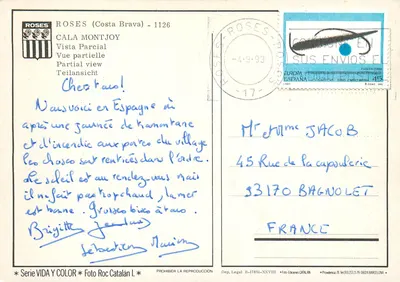 ROSES (Costa Brava) - 1126
CALA MONTJOY
Vista Parcial
Vue partielle
Partial view
Teilansicht
ROSES
Chers tous!
Nous voici en Espagne où
après une journée de tramontane
et d'incendie aux portes du village
les choses sont rentrées dans l'ordre.
Le soleil est au rendez-vous mais
il ne fait pas trop chaud, la mer
est bonne. Grosses bises à tous.
Brigitte
Sébastien
ROSES
-4-8-93
-17-
SUS ENVIOS
EUROPA
ESPAÑA
45
Mr et Mme JACOB
45 Rue de la capsulerie
93170 BAGNOLET
FRANCE
* Serie VIDA Y COLOR * Foto Roc Catalan L *
PROHIBIDA LA REPRODUCCIÓN